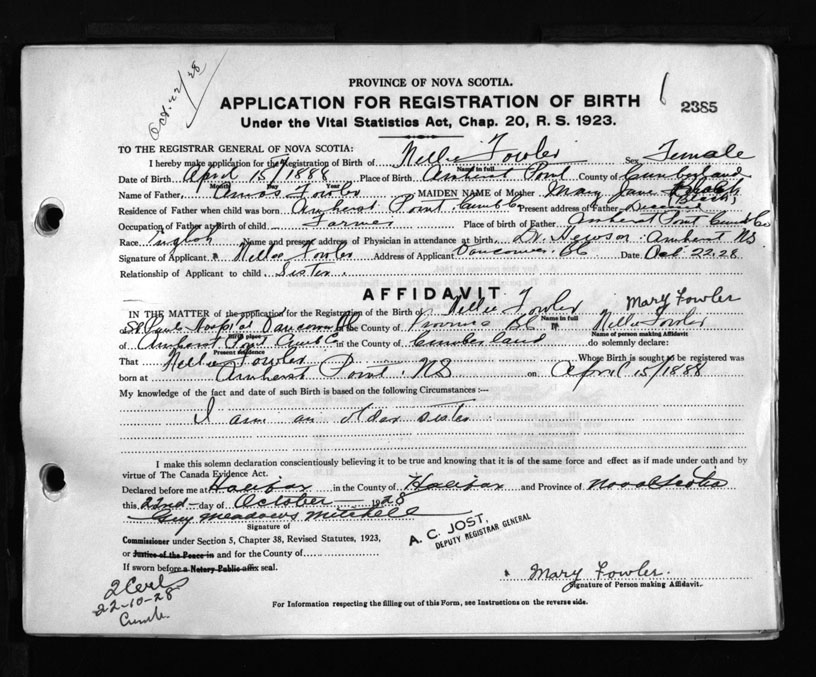 Oct. 22/28
PROVINCE OF NOVA SCOTIA.
APPLICATION FOR REGISTRATION OF BIRTH
2385
Under the Vital Statistics Act, Chap. 20, R. S. 1923.
TO THE REGISTRAR GENERAL OF NOVA SCOTIA:
I hereby make application for the Registration of Birth of Nellie Fowler Sex Female
Name in full
Date of Birth April 15/1888 Place of Birth Amherst Point County of Cumberland
Month Day Year
Name of Father, Amos Fowler MAIDEN NAME of Mother Mary Jane
Residence of Father when child was born Amherst Point. Cumb Co Present address of Father
Occupation of Father at Birth of child Farmer Place of birth of Father Amherst Point Cumb Co
Race English Name and present address of Physician in attendance at birth Dr. Amherst NS.
Signature of Applicant Nellie Fowler Address of Applicant Vancouver. BC Date Oct 22.28
Relationship of Applicant to child Sister.
AFFIDAVIT.
Mary Fowler
IN THE MATTER of the application for the Registration of the Birth of Nellie Fowler
Name in full
of St Pauls Hospital Vancouver BC in the County of BC I, Nellie Fowler
Birth place Name of person making Affidavit
of Amherst Point Cumb Co in the County of Cumberland do solemnly declare:
Present residence
That Nellie Fowler Whose Birth is sought to be registered was
born at Amherst Point. NS on April 15/1888
My knowledge of the fact and date of such Birth is based on the following Circumstances:—
I am an older sister
I make this solemn declaration conscientiously believing it to be true and knowing that it is of the same force and effect as if made under oath and by
virtue of The Canada Evidence Act.
Declared before me at Halifax in the County of Halifax and Province of Nova Scotia
this 22nd day of October 1928
Guy Meadows Mitchell
Signature of
Commissioner under Section 5, Chapter 38, Revised Statutes, 1923,
or Justice of the Peace in and for the County of
If sworn before a Notary Public affix seal.
A. C. JOST,
DEPUTY REGISTRAR GENERAL
Mary Fowler
Signature of Person making Affidavit.
2 Certs
22-10-28
Cumb.
For Information respecting the filling out of this Form, see Instructions on the reverse side.